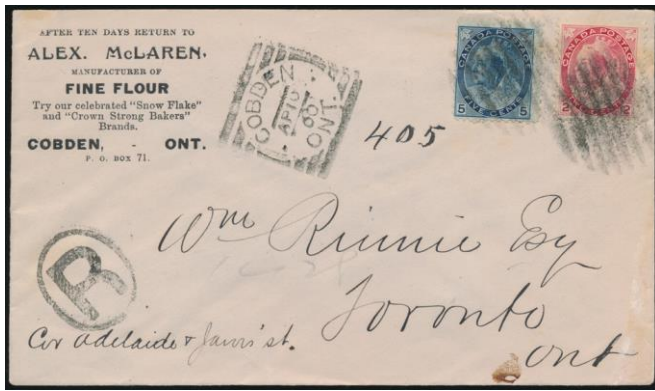 AFTER TEN DAYS RETURN TO
ALEX. McLAREN.
MANUFACTURER OF
FINE FLOUR
Try our celebrated "Snow Flake"
and "Crown Strong Bakers"
Brands.
COBDEN, - ONT.
P. O. BOX 71.
COBDEN
ONT.
CANADA POSTAGE
5 FIVE CENTS 5
CANADA POSTAGE
2 2
405
R
Wm Rinnie Esq
Toronto
Ont
Cor Adelaide & Jarvis' st.